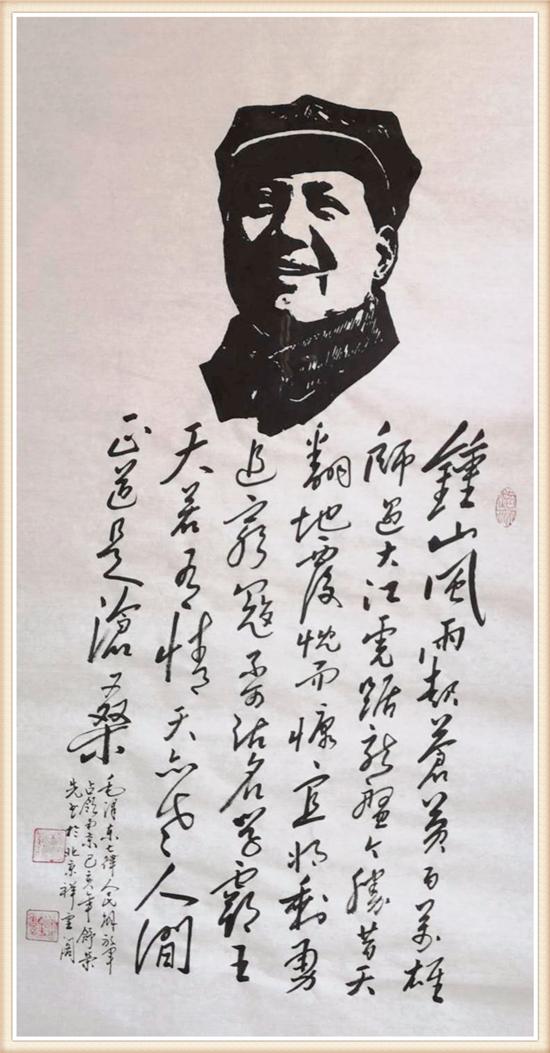 鍾山風雨起蒼黃百萬雄
師過大江虎踞龍盤今勝昔天
翻地覆慨而慷宜將剩勇
追窮寇不可沽名學霸王
天若有情天亦老人間
正道是滄桑
毛澤東七律人民解放軍
占領南京己亥年
先書於北京祥雲閣